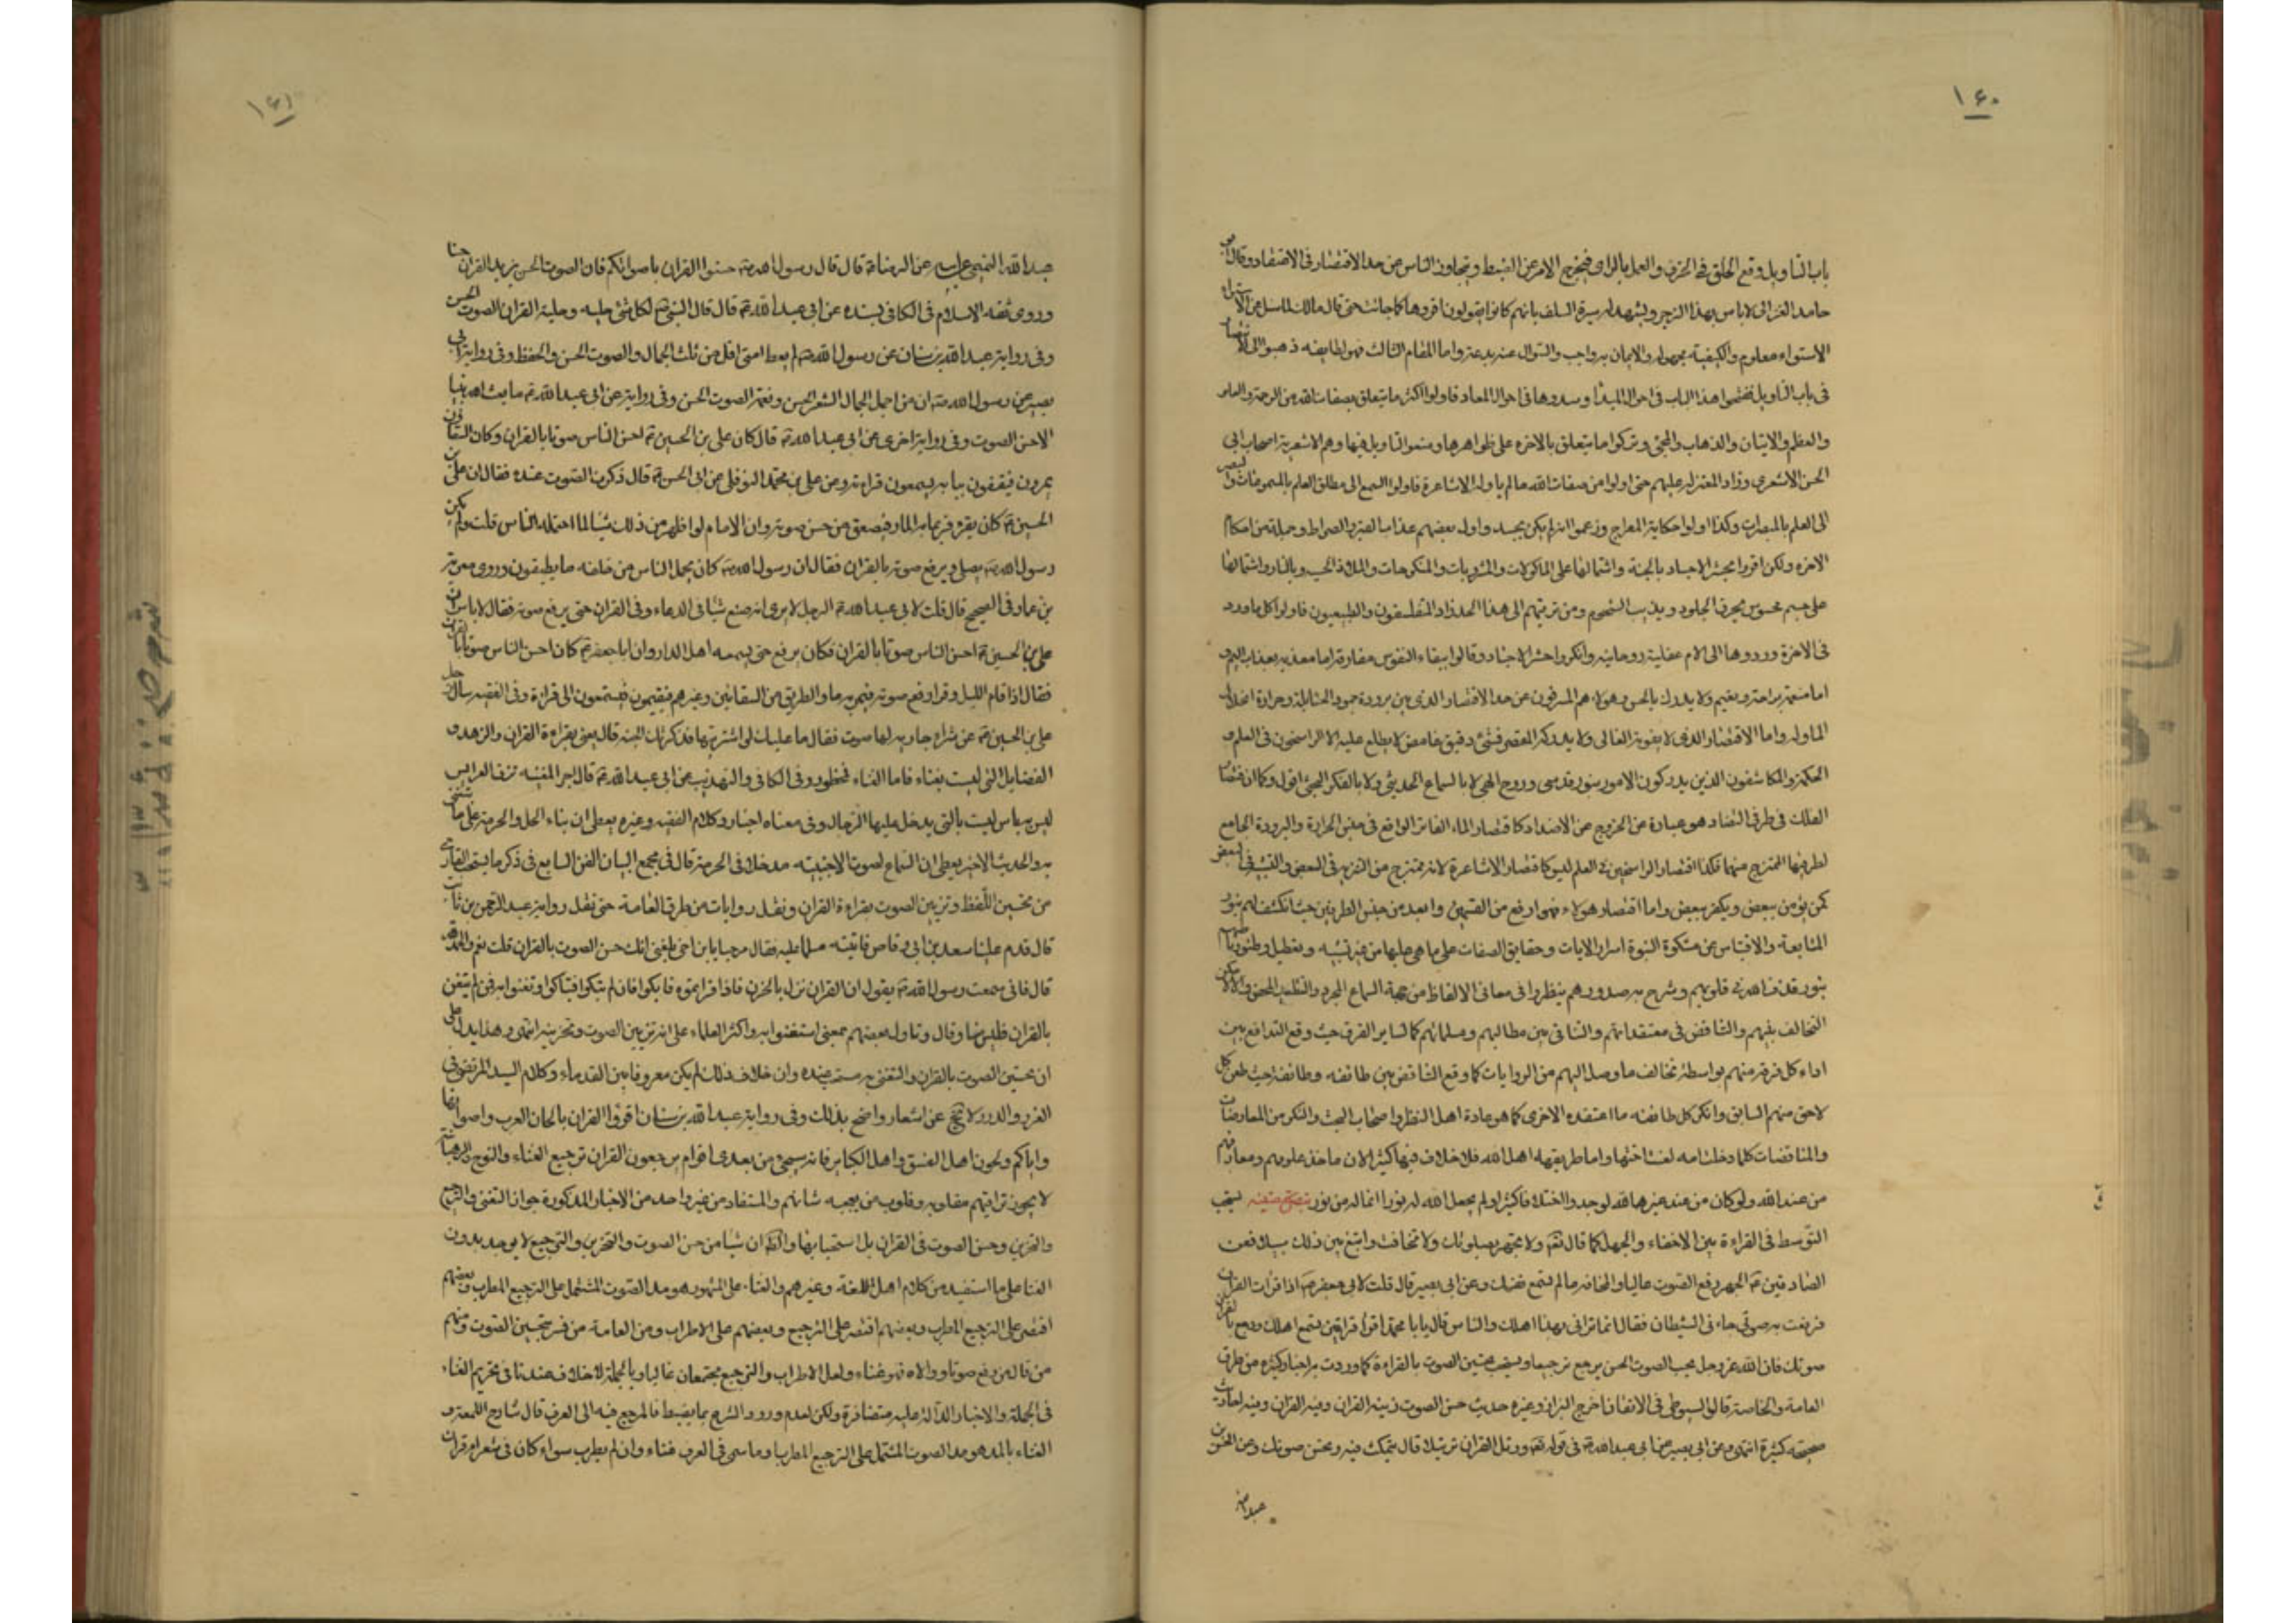 ١٦٠
باب التاويل وقع الخلق في الخرق والعمل بالراى فيخرج الامر عن الضبط ويتجاوز الناس عن حد الاقتصار في الاقتصاد وقال ابو
حامد الغزالى لا باس بهذا الزجر ويشهد له سيرة السلف بانهم كانوا يقولون اقروها كما جائت حتى قال مالك لما سئل عن الاستواء
الاستواء معلوم والكيفية مجهولة والايمان به واجب والسؤال عنه بدعة واما المقام الثالث فهو لطايفه ذهبوا الى الاقتصاد
في باب التاويل ففتحوا هذا الباب في احوال المبدأ وسدوها في احوال المعاد فاولوا اكثر ما يتعلق بصفات الله من الرحمة والعلو
والعظم والاتيان والذهاب والمجئ وتركوا ما يتعلق بالاخره على ظواهرها ومنعوا التاويل فيها وهم الاشعرية اصحاب ابى
الحسن الاشعرى وزاد المعتزله عليهم حتى اولوا من صفات الله ما لم ياوله الاشاعرة فاولوا السمع الى مطلق العلم بالمسموعات والبصر
الى العلم بالمبصرات وكذا اولوا حكاية المعراج وزعموا انه لم يكن بجسد واول بعضهم عذاب القبر والصراط وجملة من احكام
الاخرة ولكن اقروا بحشر الاجساد بالجنة واشتمالها على الماكولات والمشروبات والمنكوحات والملاذ الحسية وبالنار واشتمالها
على جسم محسوس يحرق الجلود ويذيب الشحوم ومن ترقيهم الى هذا الحد زاد المتفلسفون والطبيعيون فاولوا كل ما ورد
في الاخرة وردوها الى الام عقلية روحانية وانكروا حشر الاجساد وقالوا ببقاء النفوس مفارقة اما معذبه بعذاب اليم و
اما منعمة براحة ونعيم ولا يدرك بالحس وهولاء هم المسرفون عن حد الاقتصاد الذى بين برودة جمود الحنابلة وحرارة انحلال
الماوله واما الاقتصاد الذى لا يفوته الغالى ولا يدركه المقصر فشئ دقيق غامض لا يطلع عليه الا الراسخون في العلم و
الحكمة والمكاشفون الذين يدركون الامور بنور قدسى وروح الهى لا بالسماع الحديثى ولا بالفكر البحثى اقول وكما ان اقتصاد
الفلك في طرفى التضاد هو عبارة عن الخروج عن الاضداد لا كاقتصاد الماء الفاتر الواقع في جنس الحرارة والبرودة الجامع
لطرفيها الممتزج منهما فكذا اقتصاد الراسخين في العلم ليس كاقتصاد الاشاعرة لانه ممتزج من التنزيه في البعض والتشبيه في البعض
كمن يؤمن ببعض ويكفر ببعض واما اقتصاد هولاء فهو ارفع من القسمين وابعد من جنس الطرفين حيث انكشف لهم بنور
المتابعة والاقتباس من مشكوة النبوة اسرار الايات وحقايق الصفات على ما هى عليها من غير تشبيه وتعطيل
بنور قذف الله في قلوبهم وشرح به صدورهم فلم ينظروا في معانى الالفاظ من جهة السماع المجرد
التخالف بينهم والتناقض في معتقداتهم والتنافى بين مطالبهم ومسلماتهم كما لساير الفرق حيث وقع التدافع بين
اراء كل فرقة منهم بواسطة تخالف ما وصل اليهم من الروايات كما وقع التناقض بين طائفه وطائفة حيث طعن كل
لاحق منهم السابق وانكر كل طائفه ما اعتقده الاخرى كما هو عادة اهل النظر واصحاب البحث والفكر من المعارضات
والمناقضات كلما دخلت امة لعنت اختها واما طريقه اهل الله فلا خلاف فيها كثيرا لان ماخذ علومهم ومعارفهم
من عند الله ولو كان من عند غير الله لوجدوا اختلافا كثيرا ولم يجعل الله له نورا فما له من نور يستحب
التوسط في القراءة بين الاخفاء والجهر كما قال تعالى ولا تجهر بصلوتك ولا تخافت وابتغ بين ذلك سبيلا فعن
الصادقين الجهر رفع الصوت عاليا والمخافة ما لم تسمع نفسك وعن ابى بصير قال قلت لابى جعفر اذا قرات القران
فرفعت به صوتى جاءنى الشيطان فقال انما ترائى بهذا اهلك والناس قال يابا محمد اقرأ قراءة بين تسمع اهلك ورجع بالقران
صوتك فان الله عز وجل يحب الصوت الحسن يرجع ترجيعا ويستحب تحسين الصوت بالقراءة كما وردت به اخبار كثيرة من طرق
العامة والخاصة قال السيوطى في الاتقان اخرج البزار وغيره حديث حسن الصوت زينة القران وفيه احاديث
صحيحه كثيرة انتهى وعن ابى بصير عن ابى عبد الله في قوله تعالى ورتل القران ترتيلا قال تتمكث فيه وتحسن صوتك وعن الحسن بن
عبد الله
١٦١
عبد الله التميمى عن ابيه عن الرضا قال قال رسول الله حسنوا القران باصواتكم فان الصوت الحسن يزيد القران حسنا
وروى ثقة الاسلام في الكافى بسنده عن ابى عبد الله قال قال النبى لكل شئ حلية وحلية القران الصوت الحسن
وفى رواية عبد الله بن سنان عن رسول الله لم يعط امتى اقل من ثلث الجمال والصوت الحسن والحفظ وفى رواية ابى
بصير عن رسول الله ان من اجمل الجمال الشعر الحسن ونغمة الصوت الحسن وفى رواية عن ابى عبد الله ما بعث الله نبيا
الا حسن الصوت وفى رواية اخرى عن ابى عبد الله قال كان على بن الحسين احسن الناس صوتا بالقران وكان السقاؤن
يمرون فيقفون ببابه يسمعون قراءته وعن على بن محمد النوفلى عن ابى الحسن قال ذكرت الصوت عنده فقال ان على بن
الحسين كان يقرء فربما مر به المار فصعق من حسن صوته وان الامام لو اظهر من ذلك شيئا لما احتمله الناس قلت ولم يكن
رسول الله يصلى ويرفع صوته بالقران فقال ان رسول الله كان يحمل الناس من خلفه ما يطيقون وروى معوية
بن عمار في الصحيح قال قلت لابى عبد الله الرجل لا يرى انه صنع شيئا في الدعاء وفى القران حتى يرفع صوته فقال لا باس ان
على بن الحسين احسن الناس صوتا بالقران فكان يرفع حتى يسمعه اهل الدار وان ابا جعفر كان احسن الناس صوتا بالقران
فقال اذا قام الليل وقرا رفع صوته فيمر به مار الطريق من السقائين وغيرهم فيقيمون فيستمعون الى قراءة وفى الفقيه سال رجل
على بن الحسين عن شراء جارية لها صوت فقال ما عليك لو اشتريتها فذكرتك الجنه قال يعنى بقراءة القران والزهد و
الفضايل التى ليست بغناء فاما الغناء فمحظور وفى الكافى والتهذيب عن ابى عبد الله قال اجر المغنيه تزف العرايس
ليس به باس ليست بالتى يدخل عليها الرجال وفى معناه اخبار وكلام الفقيه وغيره يعطى ان بناء الحل والحرمة على ما يتغنى
به والحديث الاخير يعطى ان السماع لصوت الاجنبيه مدخلا في الحرمة قال في مجمع البيان الفن السابع في ذكر ما يستحب للقارى
من تحسين اللفظ وتزيين الصوت بقراءة القران ونقل روايات من طرق العامة حتى نقل رواية عبد الرحمن بن ثابت
قال قدم علينا سعد بن ابى وقاص فاتيته مسلما عليه فقال مرحبا يابن اخى بلغنى انك حسن الصوت بالقران قلت نعم والحمد لله
قال فانى سمعت رسول الله يقول ان القران نزل بالحزن فاذا قراتموه فابكوا فان لم تبكوا فتباكوا وتغنوا به فمن لم يتغن
بالقران فليس منا وقال وتاول بعضهم بمعنى استغنوا به واكثر العلماء على انه تزيين الصوت وتحزينه انتهى وهذا يدل على
ان تحسين الصوت بالقران والتغنى به مستحب عنده وان خلاف ذلك لم يكن معروفا بين القدماء وكلام السيد المرتضى في
الغرر والدرر لا يخ عن اشعار واضح بذلك وفى رواية عبد الله بن سنان اقرؤا القران بالحان العرب واصواتها
واياكم ولحون اهل الفسق واهل الكبائر فانه سيجئ من بعدى اقوام يرجعون القران ترجيع الغناء والنوح والرهبانية
لا يجوز تراقيهم مقلوبه وقلوب من يعجبه شانهم والمستفاد من غير واحد من الاخبار المذكورة جواز التغنى والترجيع
والتحزين وحسن الصوت في القران بل استحبابها والظ ان شيئا من حسن الصوت والتحزين والترجيع لا يوجد بدون
الغنا على ما استفيد من كلام اهل اللغة وغيرهم والغناء على المشهور هو مد الصوت المشتمل على الترجيع المطرب وبعضهم
اقتصر على الترجيع المطرب وبعضهم اقتصر على الترجيع وبعضهم على الاطراب ومن العامة من فسر بتحسين الصوت ومنهم
من قال من رفع صوتا ووالاه فهو غناء ولعل الاطراب والترجيع مجتمعان غالبا وبالجملة لا خلاف عندنا في تحريم الغناء
في الجملة والاخبار الدالة عليه متضافرة ولكن لعدم ورود الشرع بما يضبط فالمرجع فيه الى العرف قال شارح اللمعة و
الغناء بالمد هو مد الصوت المشتمل على الترجيع المطرب او ما سمى في العرف غناء وان لم يطرب سواء كان في شعر او قران